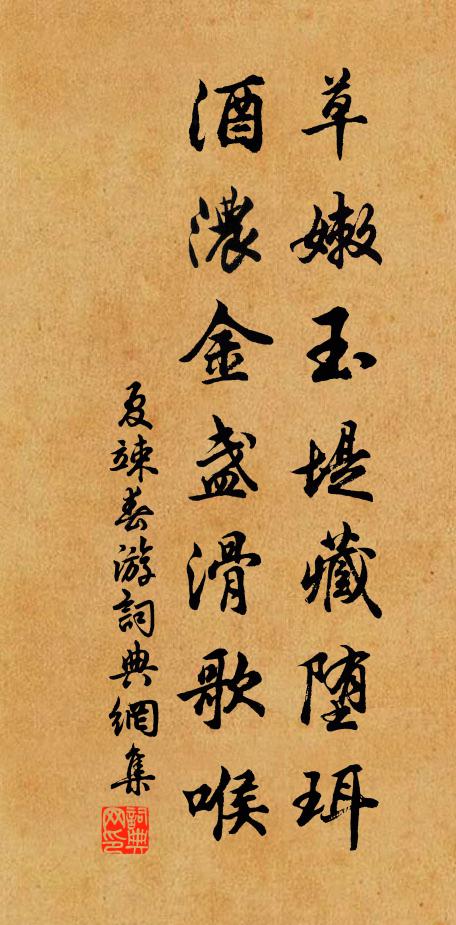 草嫩玉堤藏堕珥
酒濃金盞滑歌喉
夏竦春游詞典網集
詞典網印